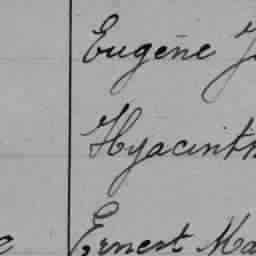 Eugène J
Hyacinth
Ernest Ma